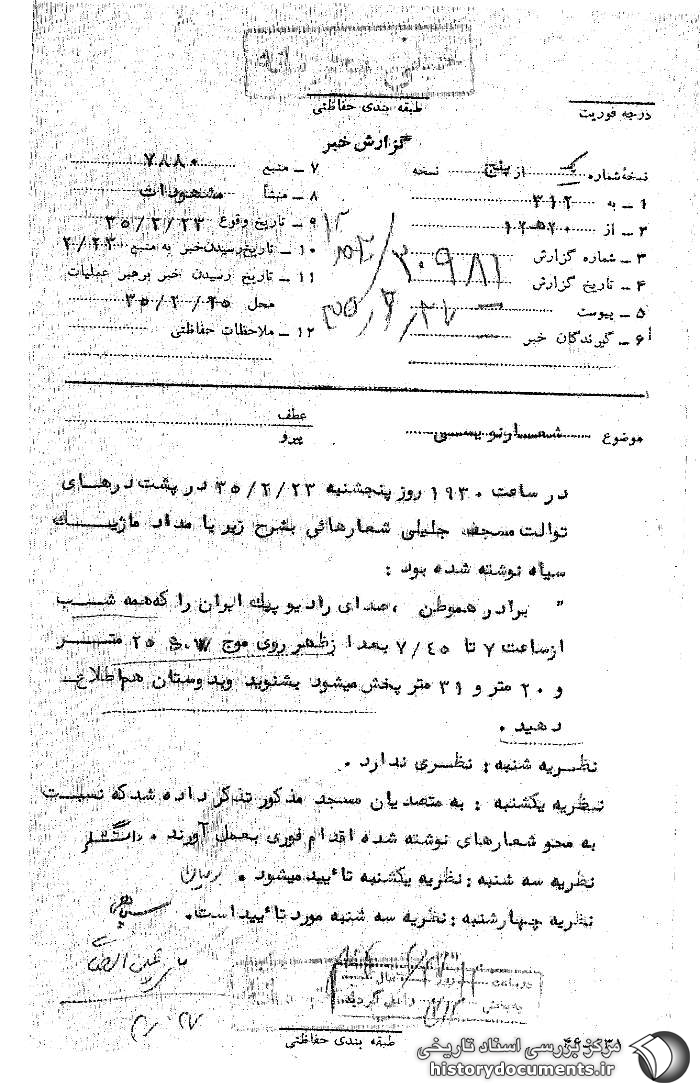 طبقه بندی حفاظتی
درجه فوریت
گزارش خبر
نسخهٔ شماره یک از پنج نسخه
۱ ـ به ۳۱۲
۲ ـ از ۱۲ ه‍ ۲۰
۳ ـ شماره گزارش ۳۰۹۸۱
۴ ـ تاریخ گزارش ۳۵/۲/۲۷
۵ ـ پیوست
۶ ـ گیرندگان خبر
۷ ـ منبع ۷۸۸۰
۸ ـ منشأ مشهودات
۹ ـ تاریخ وقوع ۳۵/۲/۲۳
۱۰ ـ تاریخ رسیدن خبر به منبع ۲/۲۳
۱۱ ـ تاریخ رسیدن خبر برهبر عملیات
محل ۳۵/۲/۲۵
۱۲ ـ ملاحظات حفاظتی
موضوع شعارنویسی
عطف
پیرو
در ساعت ۱۹۳۰ روز پنجشنبه ۳۵/۲/۲۳ در پشت درهای
توالت مسجد جلیلی شعارهائی بشرح زیر با مداد ماژیک
سیاه نوشته شده بود :
" برادر هموطن ، صدای رادیو پیک ایران را که همه شب
از ساعت ۷ تا ۷/۴۵ بعد از ظهر روی موج S.W ۲۵ متر
و ۲۰ متر و ۳۱ متر پخش میشود بشنوید و بدوستان هم اطلاع
دهید .
نظریه شنبه : نظری ندارد .
نظریه یکشنبه : به متصدیان مسجد مذکور تذکر داده شد که نسبت
به محو شعارهای نوشته شده اقدام فوری بعمل آورند . دانشگر
نظریه سه شنبه : نظریه یکشنبه تائید میشود .
نظریه چهارشنبه : نظریه سه شنبه مورد تائید است .
در ساعت روز سال
به بخش ۳۱۲ واصل گردید
۲/۲۷
طبقه بندی حفاظتی
مرکز بررسی اسناد تاریخی
historydocuments.ir